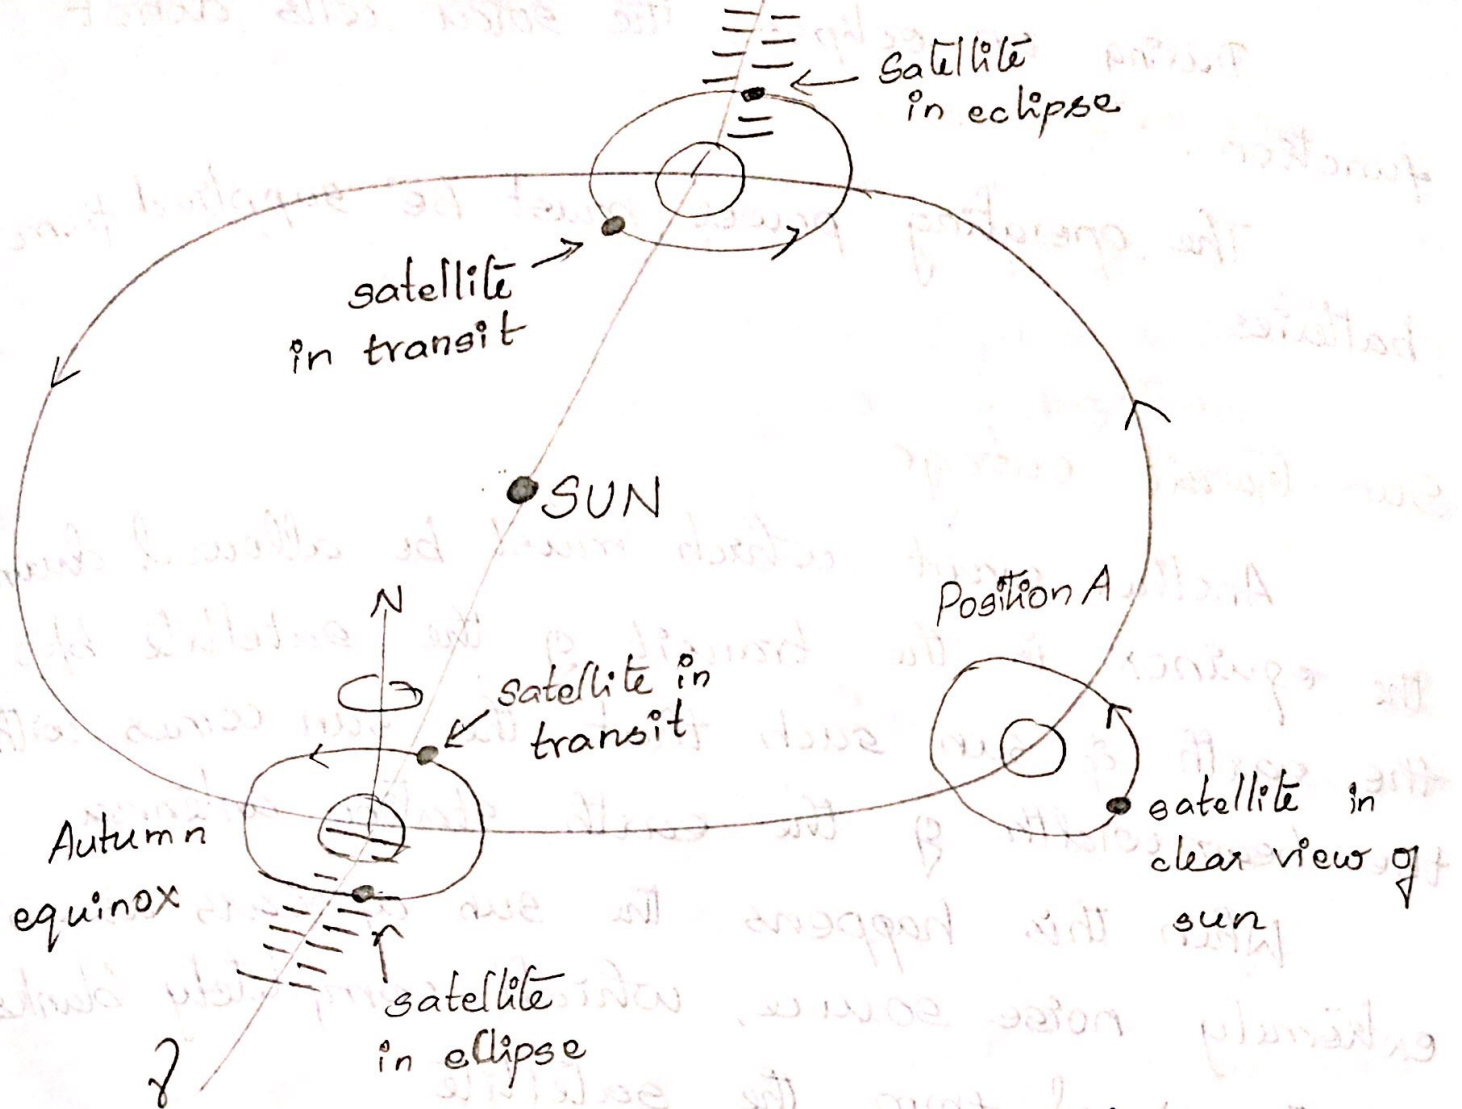 satellite
in eclipse
satellite
in transit
SUN
Position A
N
satellite in
transit
satellite in
clear view of
sun
Autumn
equinox
satellite
in eclipse
γ